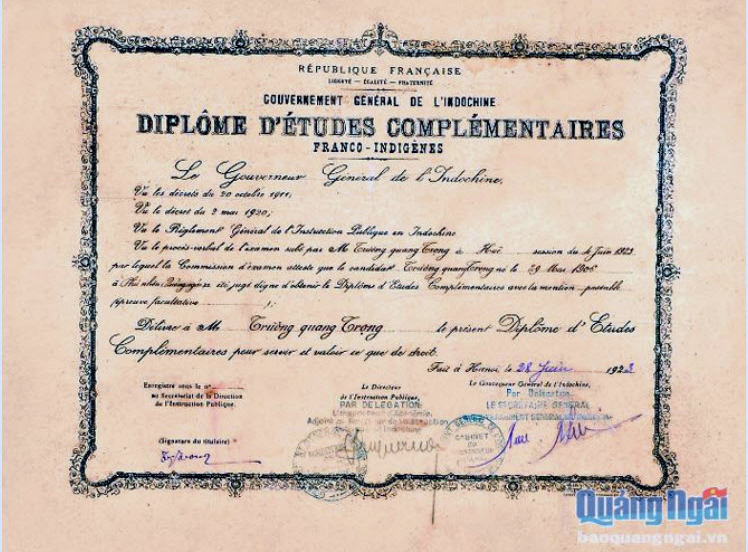 RÉPUBLIQUE FRANÇAISE
LIBERTÉ — ÉGALITÉ — FRATERNITÉ
GOUVERNEMENT GÉNÉRAL DE L'INDOCHINE
DIPLÔME D'ÉTUDES COMPLÉMENTAIRES
FRANCO-INDIGÈNES
Le Gouverneur Général de l'Indochine,
Vu les décrets du 20 octobre 1911;
Vu le décret du 2 mai 1920;
Vu le Règlement Général de l'Instruction Publique en Indochine
Vu le procès-verbal de l'examen subi par M Trương quang Trọng à Huế session du 4 Juin 1923
par lequel la Commission d'examen atteste que le candidat Trương quang Trọng né le 29 Mai 1906
à été jugé digne d'obtenir le Diplôme d'Etudes Complémentaires avec la mention passable
(épreuve facultative );
Délivre à M Trương quang Trọng le présent Diplôme d'Etudes
Complémentaires pour servir et valoir ce que de droit.
Fait à Hanoi, le 28 Juin 1923
Enregistré sous le n°
au Secrétariat de la Direction
de l'Instruction Publique.
(Signature du titulaire)
Le Directeur
de l'Instruction Publique,
PAR DELEGATION
L'Inspecteur d'Académie,
Adjoint au Directeur de l'Instruction
Le Gouverneur Général de l'Indochine,
Par Délégation
LE SECRÉTAIRE GÉNÉRAL
CABINET
DU
Quảng Ngãi
baoquangngai.vn